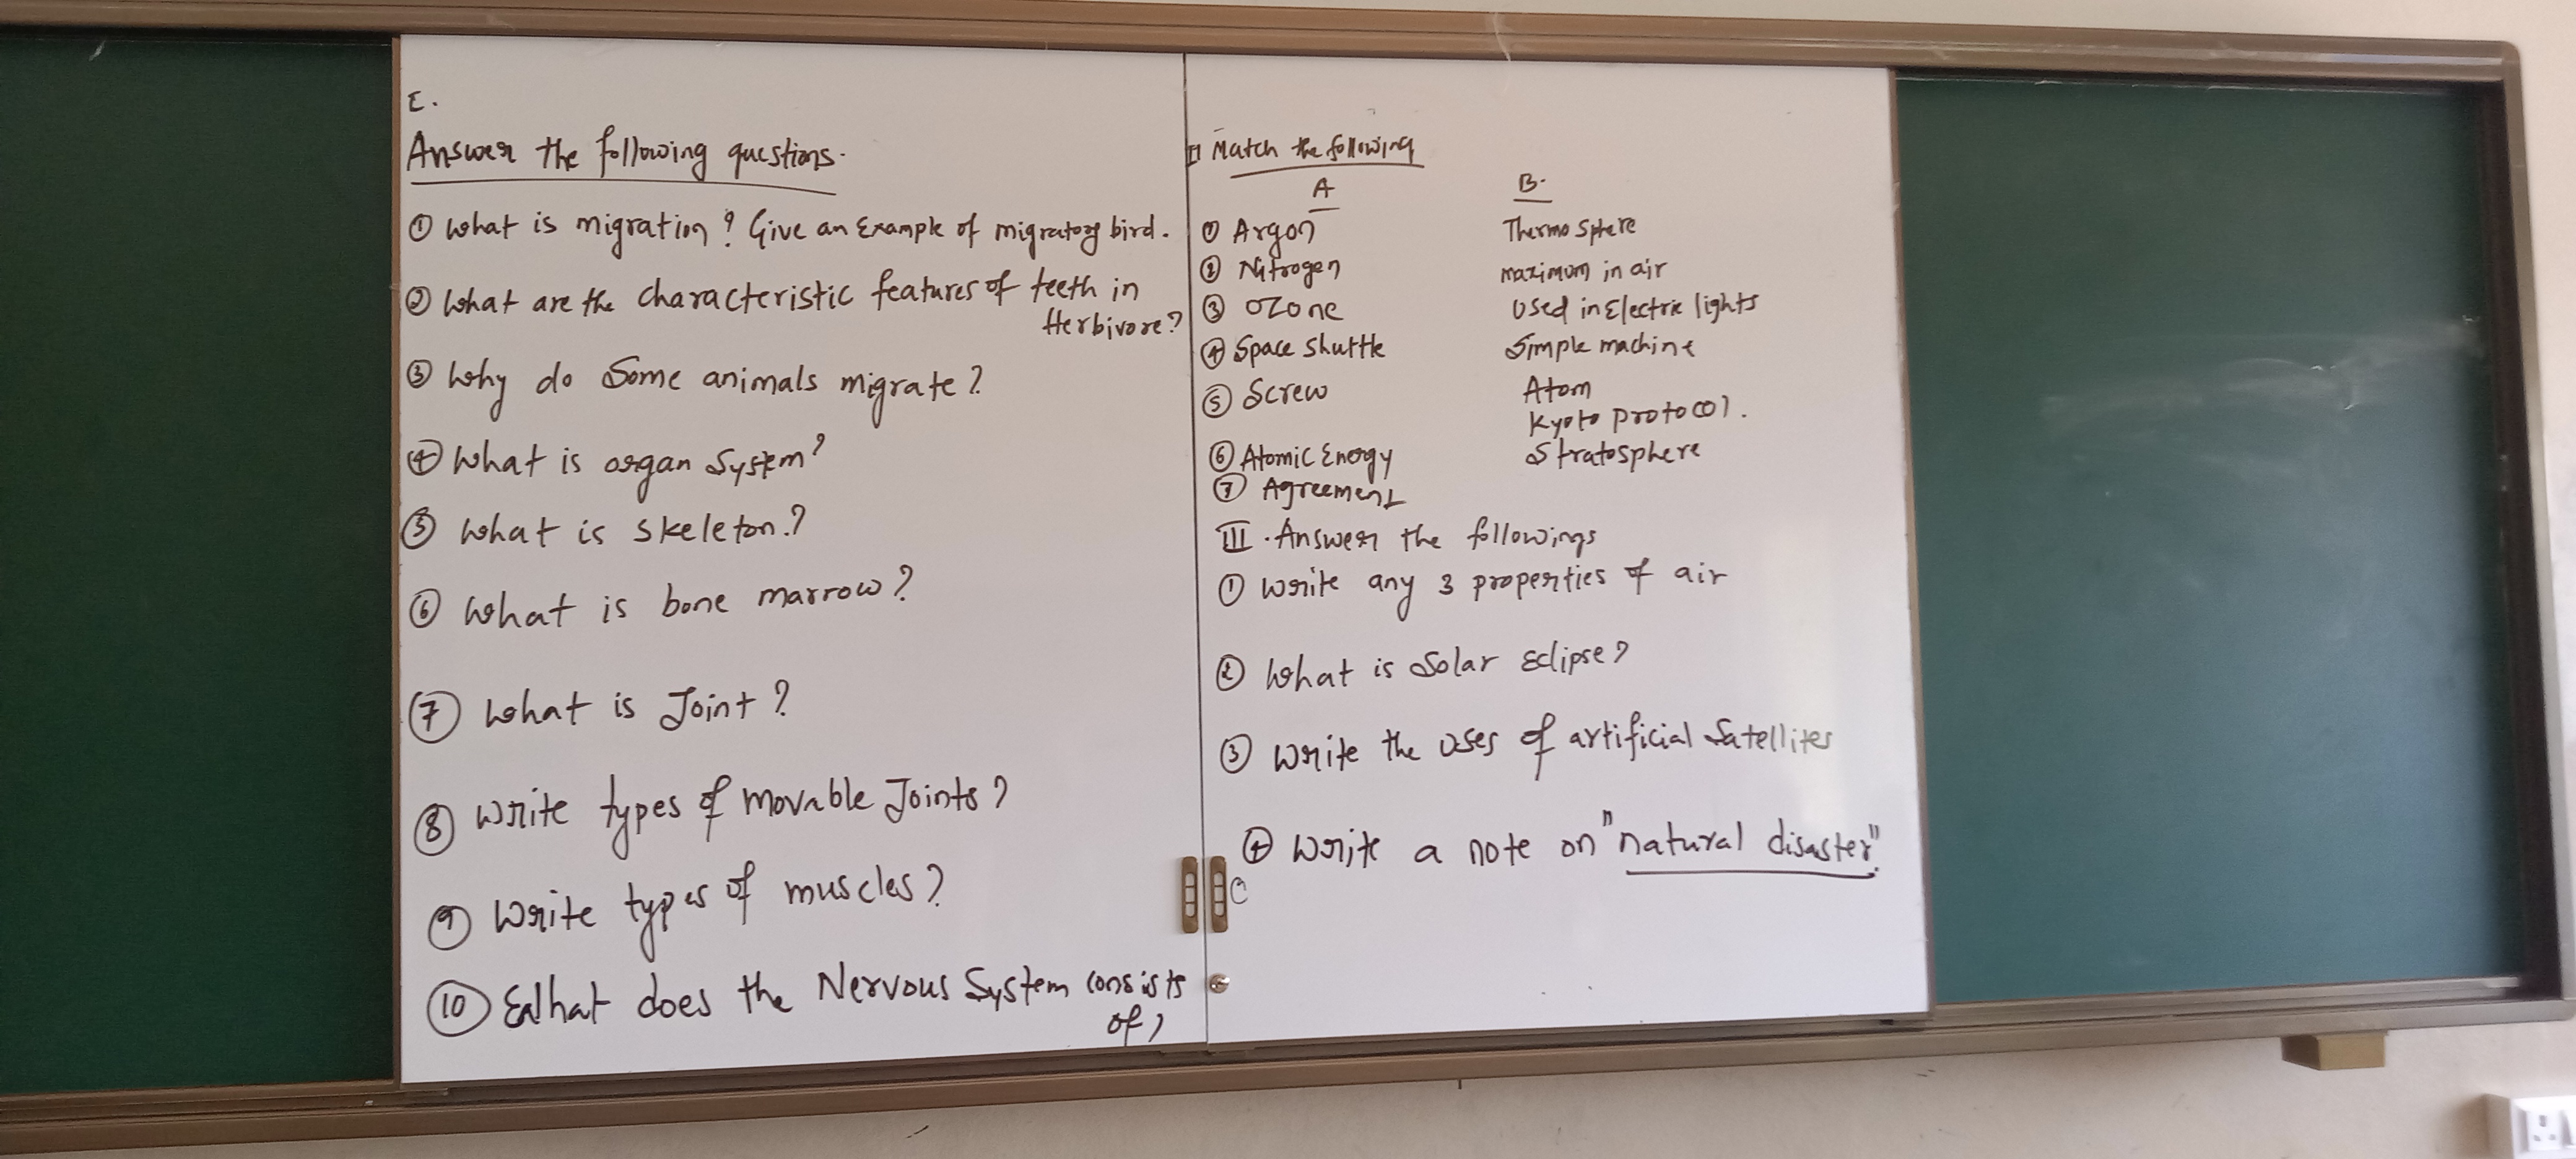 I.
Answer the following questions.
① What is migration? Give an Example of migratory bird.
② What are the characteristic features of teeth in
Herbivore?
③ Why do Some animals migrate?
④ What is organ System?
⑤ What is skeleton.?
⑥ What is bone marrow?
⑦ What is Joint?
⑧ Write types of Movable Joints?
⑨ Write types of muscles?
⑩ What does the Nervous System consists
of?
II Match the following
A B.
① Argon Thermo Sphere
② Nitrogen maximum in air
③ OZone Used in Electric lights
④ Space Shuttle Simple machine
⑤ Screw Atom
Kyoto protocol.
⑥ Atomic Energy Stratosphere
⑦ Agreement
III. Answer the followings
① Write any 3 properties of air
② What is Solar Eclipse?
③ Write the uses of artificial Satellites
④ Write a note on "natural disaster".